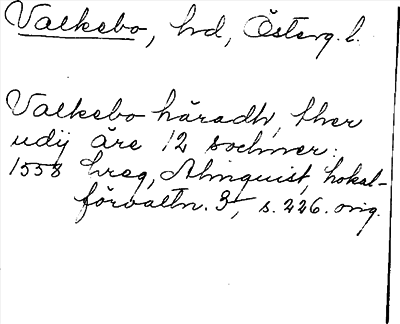 Valkebo, hd, Österg. l.
Valkebo häradh, ther
udij äre 12 sochner.
1558 hreg, Almquist, Lokal-
förvaltn. 3, s. 226. orig.